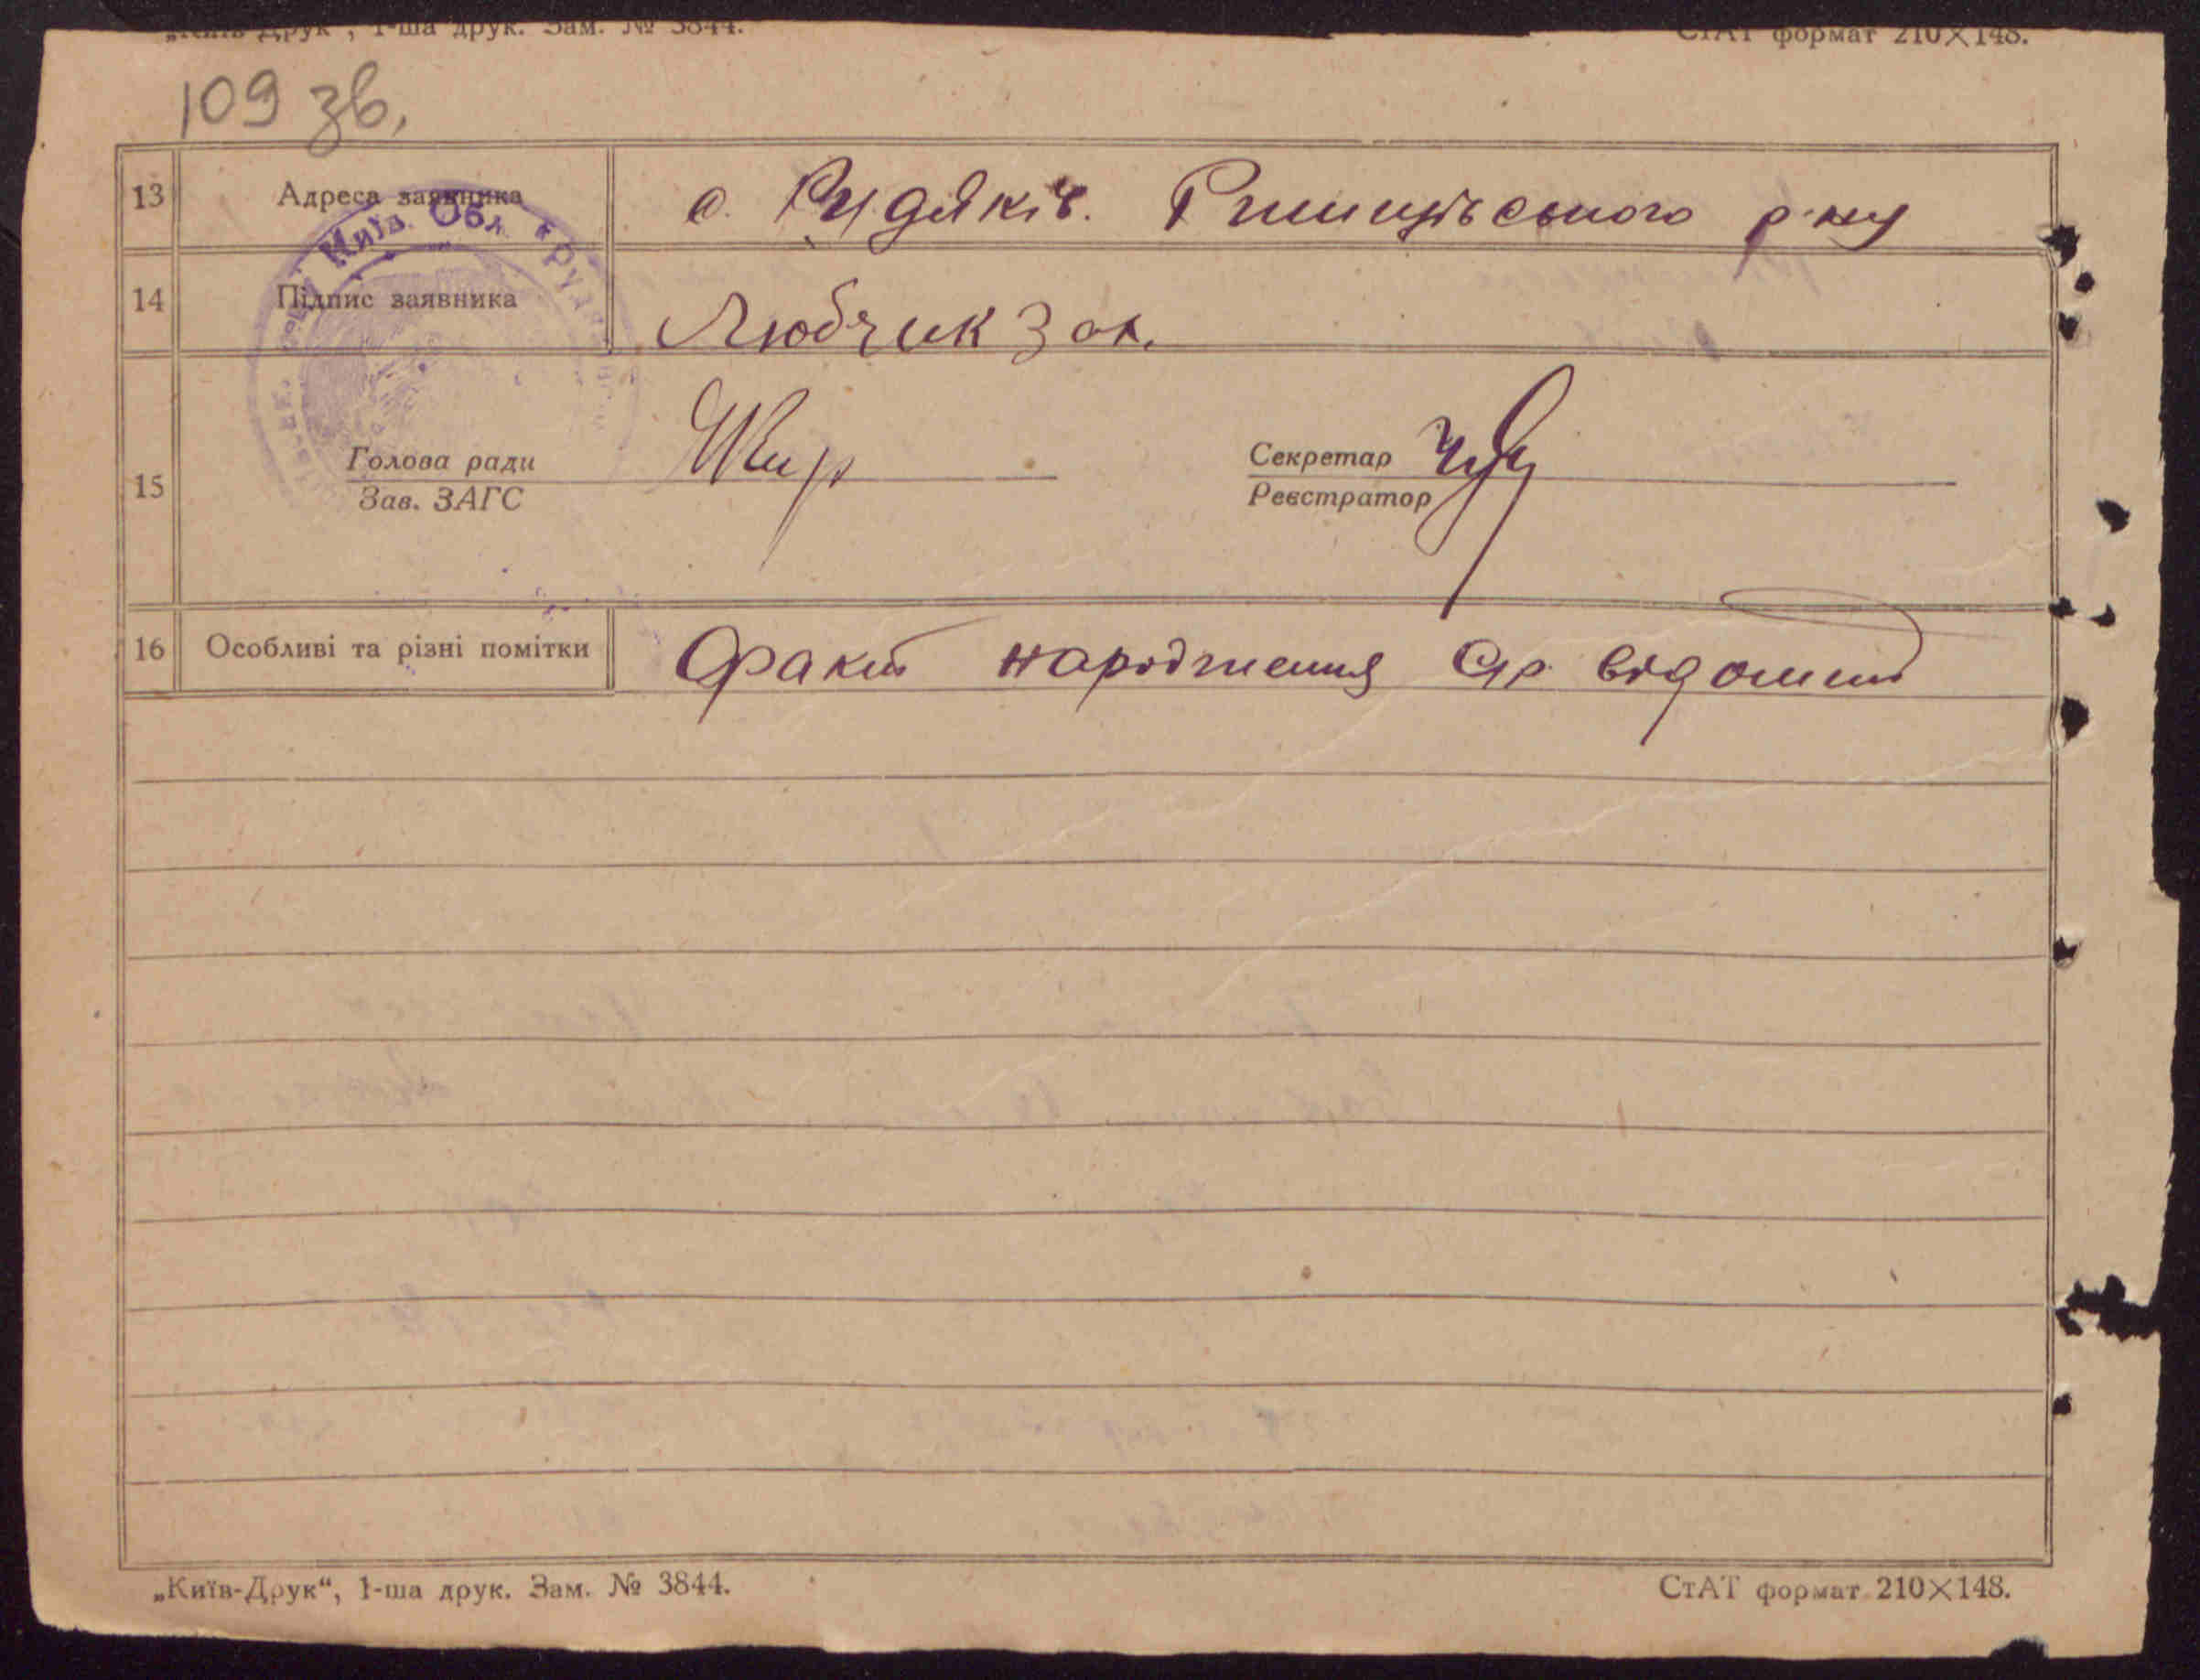 „Київ-Друк“, 1-ша друк. Зам. № 3844.
СтАТ формат 210×148.
109 зв.
13 Адреса заявника с. Рудяків. Ржищівського р-ну
Київ. Обл.
14 Підпис заявника Любчик Зах.
15 Голова ради Секретар
Зав. ЗАГС Реєстратор
16 Особливі та різні помітки Факт народження с/р відомий
„Київ-Друк“, 1-ша друк. Зам. № 3844.
СтАТ формат 210×148.